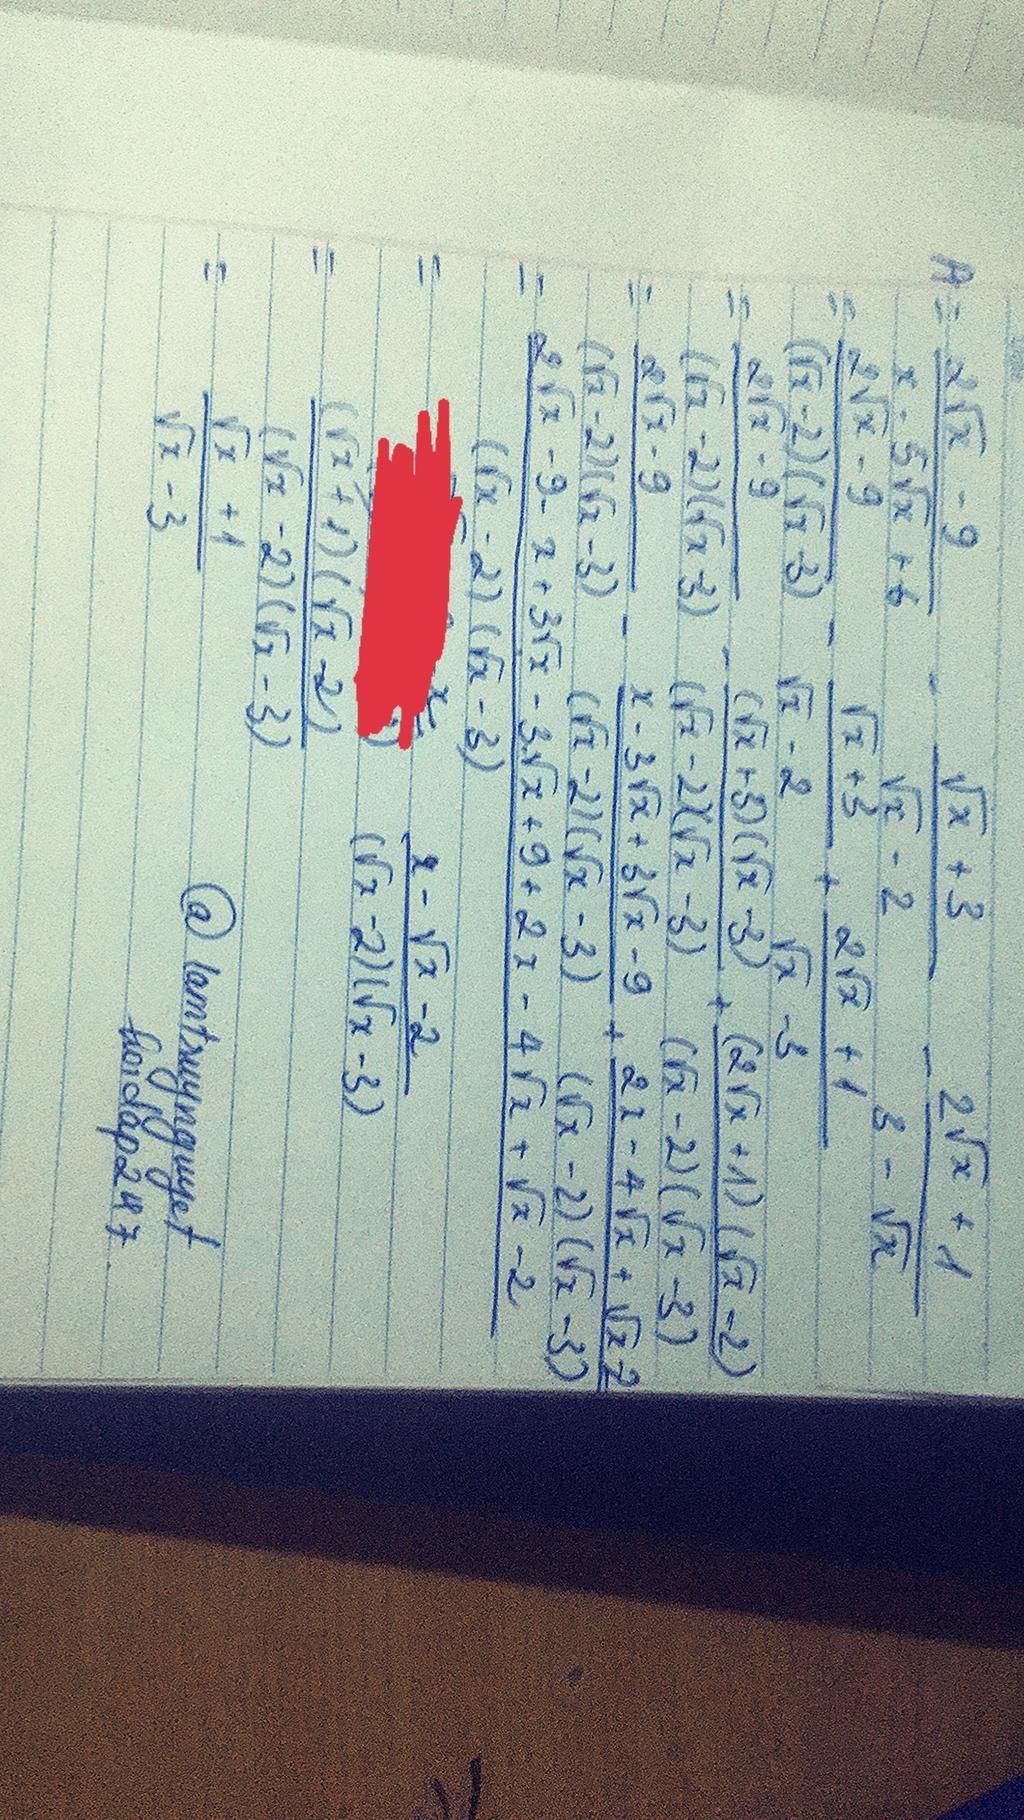 A = (2√x - 9)/(x - 5√x + 6) - (√x + 3)/(√x - 2) - (2√x + 1)/(3 - √x)
= (2√x - 9)/((√x - 2)(√x - 3)) - (√x + 3)/(√x - 2) + (2√x + 1)/(√x - 3)
= (2√x - 9)/((√x - 2)(√x - 3)) - ((√x + 3)(√x - 3))/((√x - 2)(√x - 3)) + ((2√x + 1)(√x - 2))/((√x - 2)(√x - 3))
= (2√x - 9)/((√x - 2)(√x - 3)) - (x - 3√x + 3√x - 9)/((√x - 2)(√x - 3)) + (2x - 4√x + √x 2)/((√x - 2)(√x - 3))
= (2√x - 9 - x + 3√x - 3√x + 9 + 2x - 4√x + √x - 2)/((√x - 2)(√x - 3))
= (x - √x - 2)/((√x - 2)(√x - 3))
= ((√x + 1)(√x - 2))/((√x - 2)(√x - 3))
= (√x + 1)/(√x - 3)
@ lamtxuynguyet
hoidap247